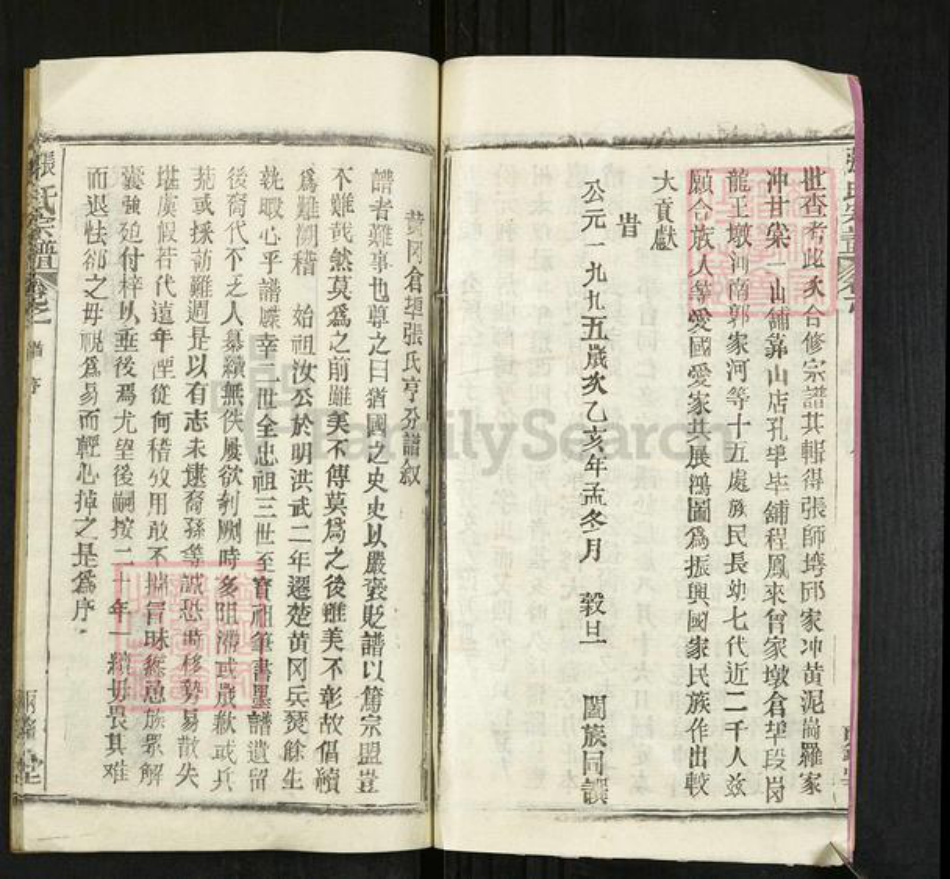 世查考此次合修宗譜其輯得張師塆邱家冲黃泥崗羅家
冲甘棠一山舖靠山店孔埠毕舖程鳳來曾家墩倉埠段岗
龍王墩河南郭家河等十五處族民長幼七代近二千人兹
願合族人等愛國愛家共展鴻圖為振興國家民族作出較
大貢獻
旹
公元一九九五歲次乙亥年孟冬月 穀旦 闔族同譔
張氏宗譜 卷之一 譜序
黄冈倉埠張氏亨分譜叙
譜者難事也尊之曰猶國之史史以嚴褒貶譜以篤宗盟豈
不難哉然莫爲之前雖美不傳莫爲之後雖美不彰故倡續
爲難開稽 始祖汝公於明洪武二年遷楚黄冈兵燹餘生
孰暇心乎譜牒幸二世全忠祖三世至寳祖筆書墨譜遺留
後裔代不乏人纂續無佚屢欲剞劂時多阻滞或歲歉或兵
荒或採訪難週是以有志未逮裔孫等誠恐時移勢易散失
堪虞假若代遠年湮從何稽攷用敢不揣冒昧 族衆解
囊強 付梓以垂後焉尤望後嗣按二十年一續毋畏其难
而退怯却之毋視爲易而輕心掉之是爲序
FamilySearch